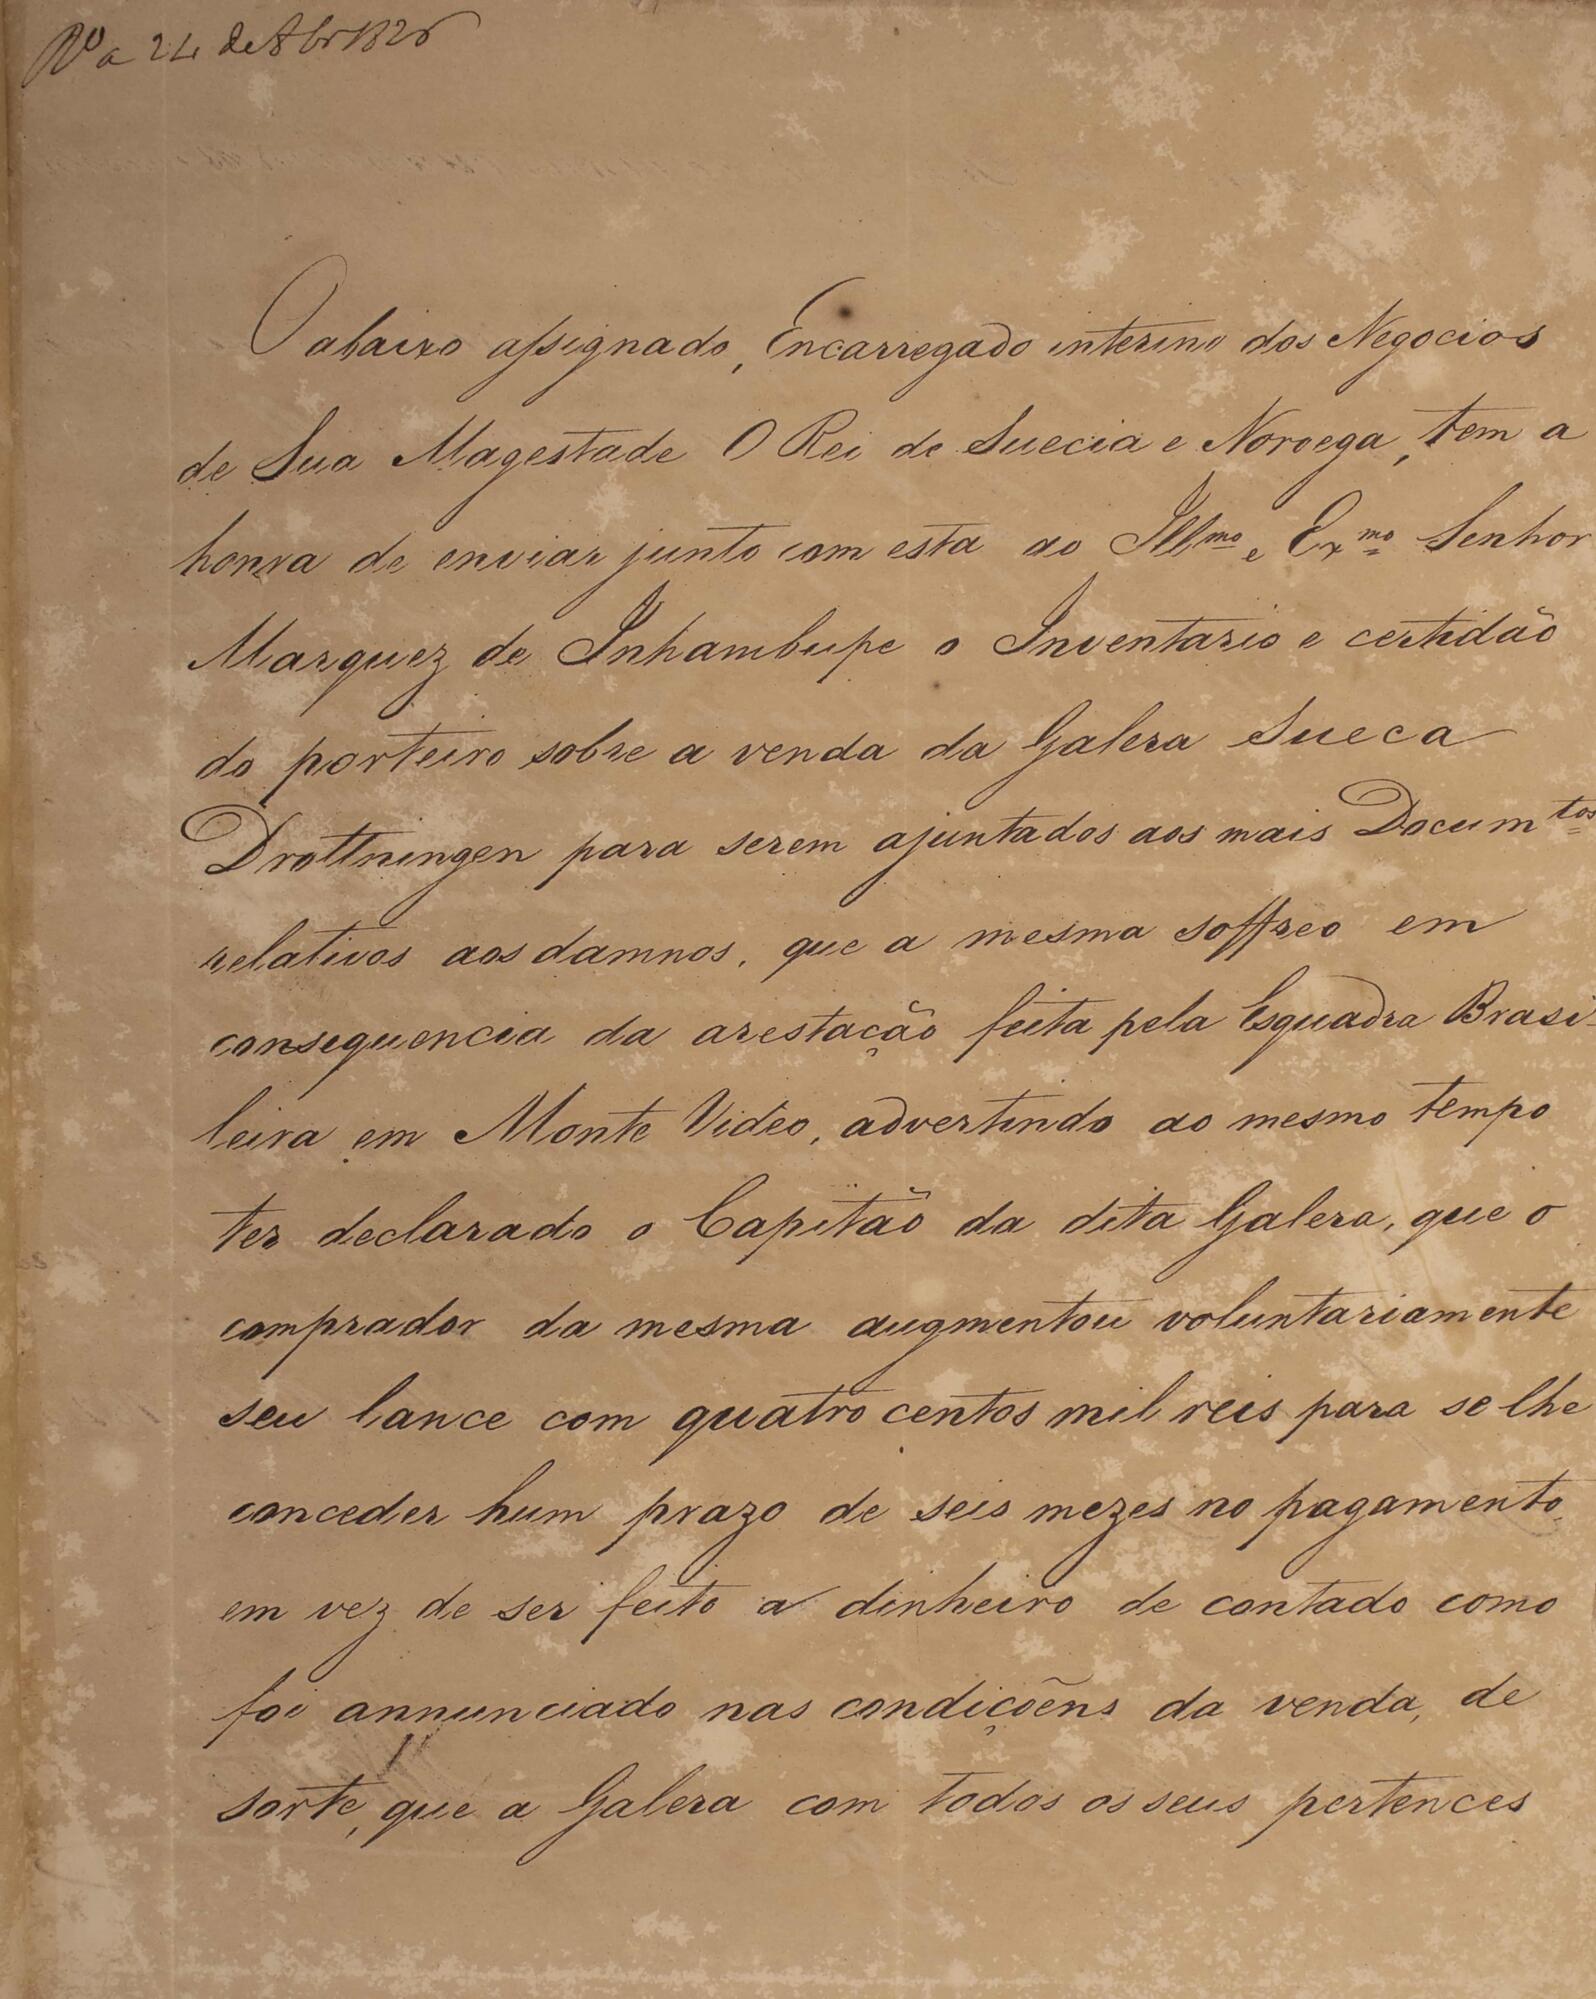 Rº a 24 de 8br 1826
O abaixo assignado, Encarregado interino dos Negocios
de Sua Magestade O Rei de Suecia e Noroega, tem a
honra de enviar junto com esta ao Illmo e Exmo Senhor
Marquez de Inhambupe o Inventario e certidão
do porteiro sobre a venda da Galera Sueca
Drottningen para serem ajuntados aos mais Documtos
relativos aos damnos, que a mesma soffreo em
consequencia da arestação feita pela Esquadra Brasi
leira em Monte Video, advertindo ao mesmo tempo
ter declarado o Capitão da dita Galera, que o
comprador da mesma augmentou voluntariamente
seu lance com quatro centos mil reis para se lhe
conceder hum prazo de seis mezes no pagamento
em vez de ser feito a dinheiro de contado como
foi annunciado nas condiçõens da venda, de
sorte, que a Galera com todos os seus pertences